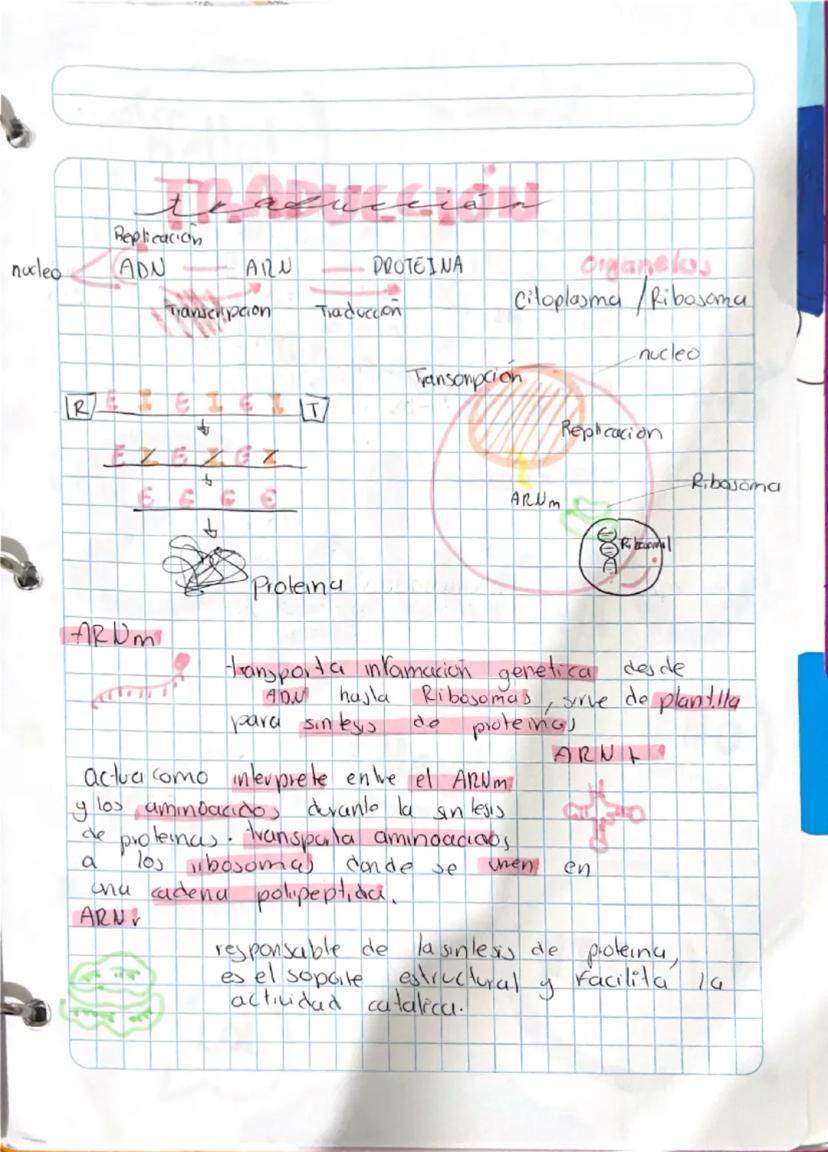 TRADUCCIÓN
traducción
Replicación
nucleo ADN ARN PROTEINA
Transcripcion Traducción
organelos
Citoplasma / Ribosoma
nucleo
Transcripción
R E I E I E I T
Replicacion
E I E I E I
Ribosoma
E E E E
ARNm
Proteina
ARNm
transporta informacion genetica desde
ADN hasta Ribosomas, sirve de plantilla
para sintesis de proteinas
ARN t
actua como interprete entre el ARNm
y los aminoacidos durante la sintesis
de proteinas. transporta aminoacidos
a los ribosomas donde se unen en
una cadena polipeptida.
ARNr
responsable de la sintesis de proteina,
es el soporte estructural y facilita la
actividad catalica.